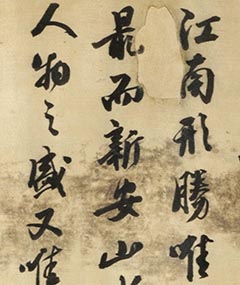 江南形勝唯
最而新安山
人物之盛又唯